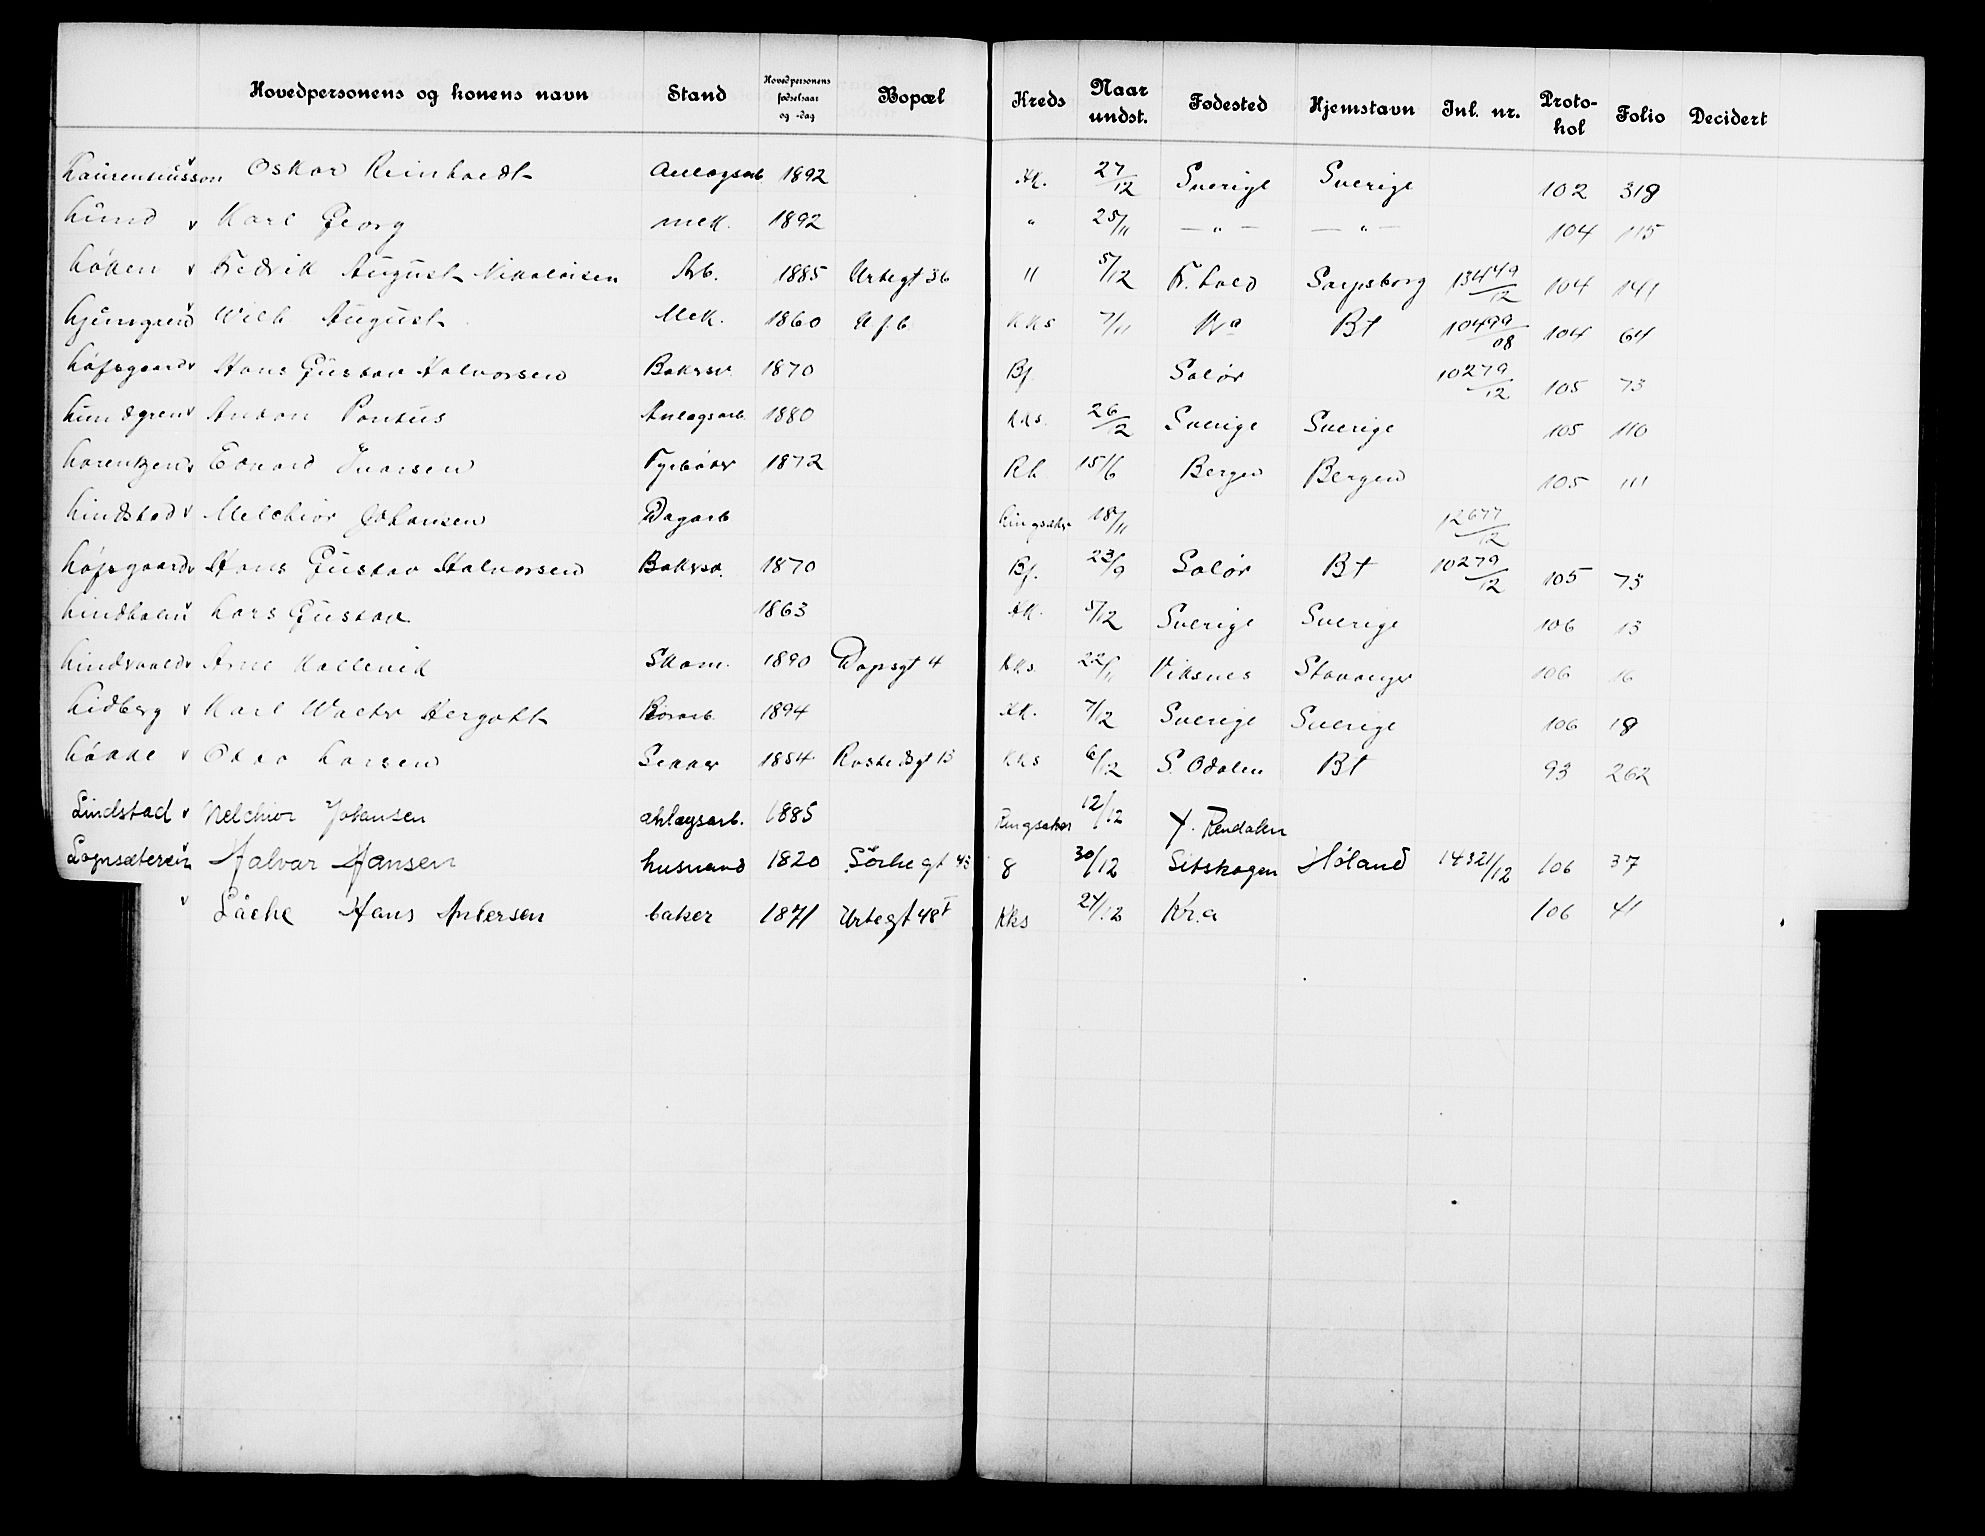 Hovedpersonens og konens navn Stand Hovedpersonens fødselsaar og -dag Bopæl Kreds Naar undst. Fødested Hjemstavn Inl. nr. Proto-kol Folio Decidert
Laurentiusson v Oskar Reinholdt Anlagsarb 1892 KK. 27/12 Sverige Sverige 102 318
Lund v Karl Georg Mek. 1892 " 25/11 — " — — " — 104 115
Løken v Fredrik August Nikolaisen Arb. 1885 Urtegt 36 11 5/12 Fr.hald Sarpsborg 13449/12 104 141
Ljunggren v Wilh August Mek. 1860 KKs 7/11 Kra Bt 10499/08 104 64
Løfsgaard v Hans Gustav Halvorsen Bakersv. 1870 Bf. Solør 10279/12 105 73
Lundgren v Anton Pontus Anlagsarb. 1880 KKs. 26/12 Sverige Sverige 105 110
Lorentzen v Edvard Ivarsen Fyrbøder 1872 Rh 15/6 Bergen Bergen 105 111
Lindstad v Melchior Johansen Dagarb Ringsaker 18/11 12677/12
Løfsgaard v Hans Gustav Halvorsen Bakersv. 1870 Bf. 23/9 Solør Bt 10279/12 105 73
Lindholm v Lars Gustav 1863 KK. 5/12 Sverige Sverige 106 13
Lindvold v Arne Kallevik Skom. 1890 Dopsgt 4 KKs 22/11 Viksnes Stavanger 106 16
Lidberg v Karl Walter Hergott Borarb. 1894 KK. 7/12 Sverige Sverige 106 18
Løkke v Otto Larsen 1884 Rostedsgt 13 KKs 6/12 S. Odalen Bt 93 262
Lindstad v Melchior Johansen anlægsarb. 1885 Ringsaker 12/12 Y. Rendalen
Lognsæteren v Halvar Hansen husmand 1820 Sørligt 43 8 30/12 Setskogen Høland 14321/12 106 37
v Låche Hans Andersen baker 1871 Urtegt 48 I KKs 27/12 Kr.a 106 41